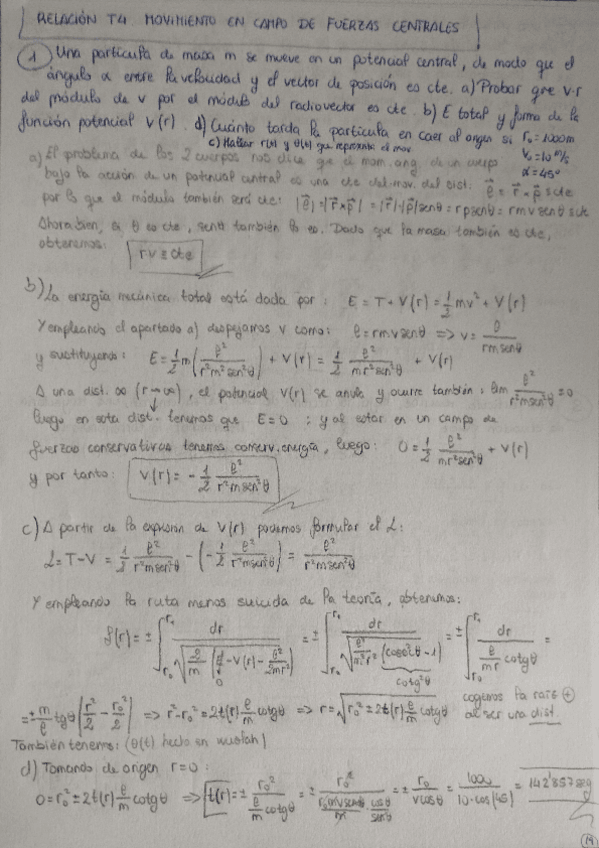 RELACIÓN T4 MOVIMIENTO EN CAMPO DE FUERZAS CENTRALES
1 Una partícula de masa m se mueve en un potencial central, de modo que el
ángulo α entre la velocidad y el vector de posición es cte. a) Probar que v·r
del módulo de v por el módulo del radiovector es cte. b) E total y forma de la
función potencial V(r). d) Cuánto tarda la partícula en caer al origen si r₀=1000m
c) Hallar r(t) y θ(t) que representa el mov. V₀=10 m/s
a) El problema de los 2 cuerpos nos dice que el mom. ang. de un cuerpo α=45°
bajo la acción de un potencial central es una cte del mov. del sist. ℓ⃗ = r⃗ × p⃗ ≡ cte
por lo que el módulo también será cte: |ℓ⃗| = |r⃗×p⃗| = |r⃗|·|p⃗|senθ = rpsenθ = rmv senθ ≡ cte
Ahora bien, si θ es cte, senθ también lo es. Dado que la masa también es cte,
obtenemos: rv ≡ cte
b) La energía mecánica total está dada por: E = T + V(r) = 1/2 mv² + V(r)
Y empleando el apartado a) despejamos v como: ℓ = rmvsenθ ⇒ v = ℓ/(rmsenθ)
y sustituyendo: E = 1/2 m(ℓ²/(r²m²sen²θ)) + V(r) = 1/2 ℓ²/(mr²sen²θ) + V(r)
A una dist. ∞ (r→∞), el potencial V(r) se anula y ocurre también: lim ℓ²/(r²msen²θ) = 0
luego en esta dist. tenemos que E=0 ; y al estar en un campo de
fuerzas conservativas tenemos conserv. energía, luego: 0 = 1/2 ℓ²/(mr²sen²θ) + V(r)
y por tanto: V(r) = - 1/2 ℓ²/(r²msen²θ)
c) A partir de la expresión de V(r) podemos formular el L:
L = T-V = 1/2 ℓ²/(r²msen²θ) - (-1/2 ℓ²/(r²msen²θ)) = ℓ²/(r²msen²θ)
Y empleando la ruta menos suicida de la teoría, obtenemos:
= ± m/ℓ tgθ [r²/2 - r₀²/2] ⇒ r²-r₀² = ±2t(r) ℓ/m cotgθ ⇒ r = √(r₀² ± 2t(r) ℓ/m cotgθ) cogemos la raíz ⊕
al ser una dist.
También tenemos: (θ(t) hecho en wuolah)
d) Tomando de origen r=0: